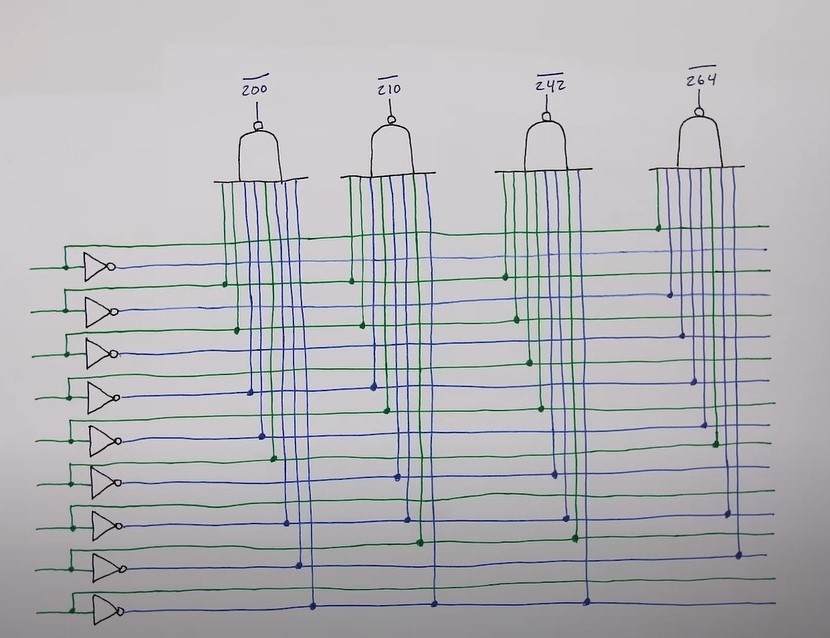 2̅0̅0̅ 2̅1̅0̅ 2̅4̅2̅ 2̅6̅4̅